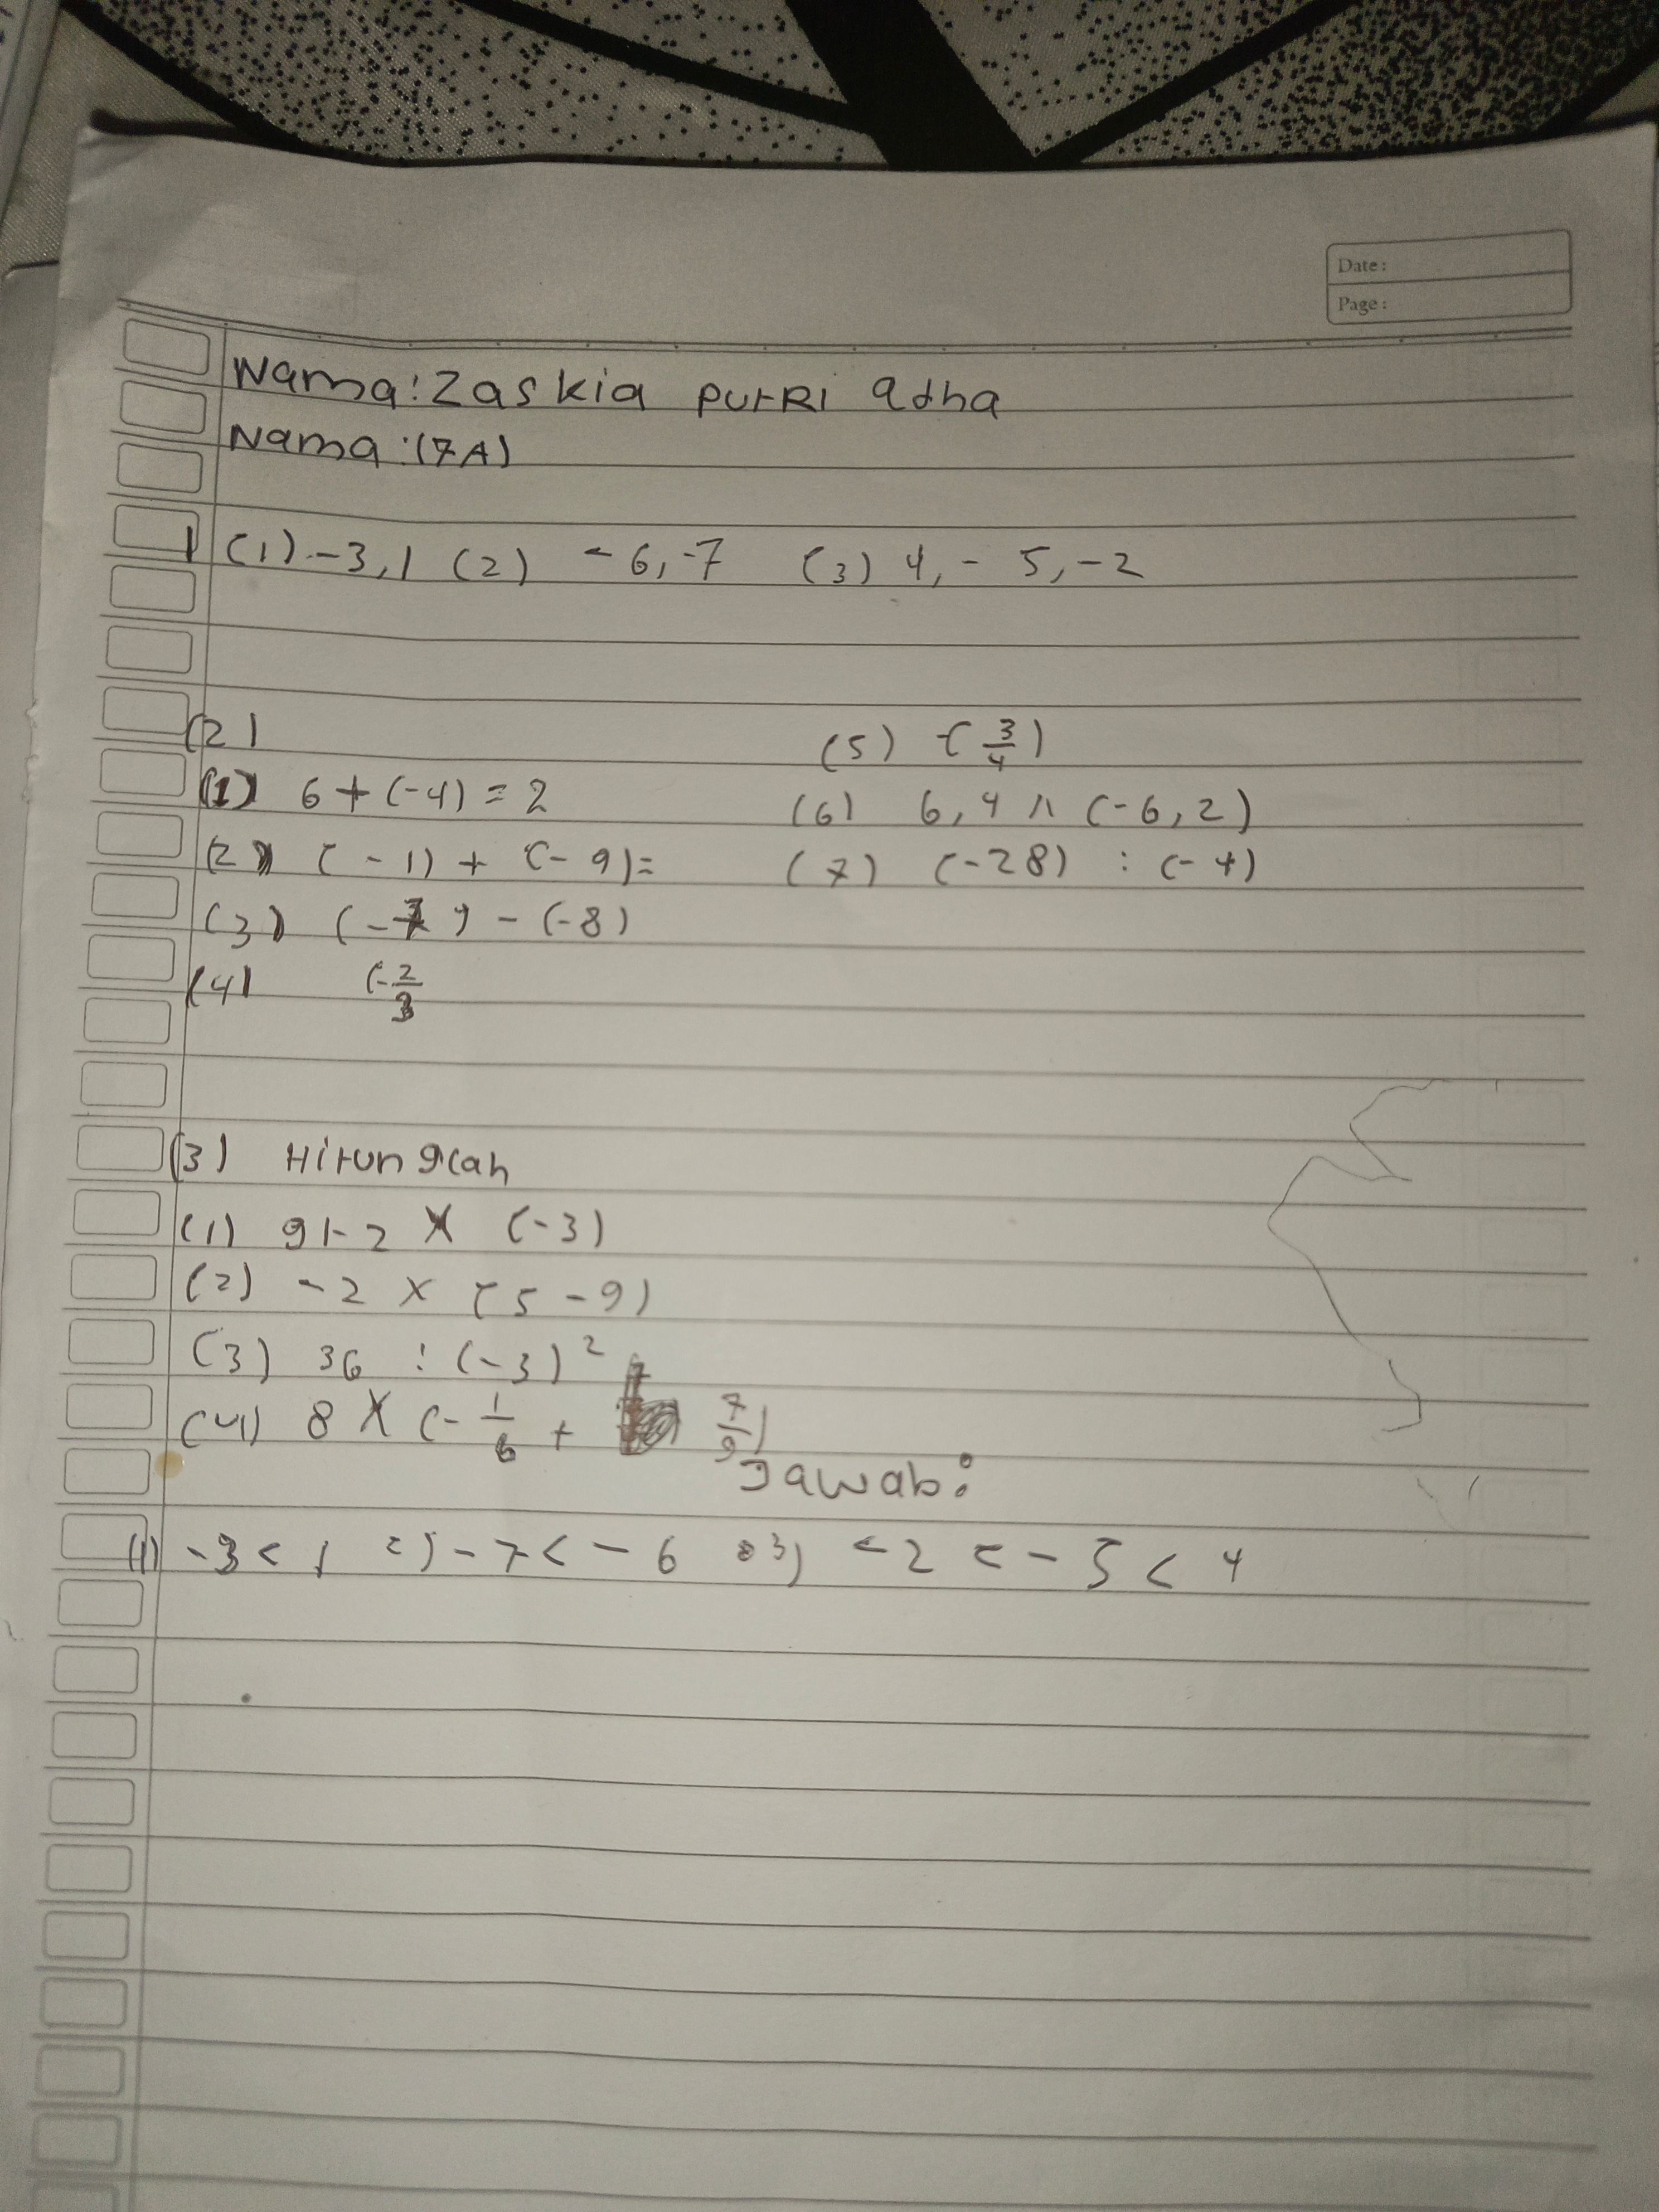 Date:
Page:
Nama: Zaskia PutRi Adha
Nama: (7A)
1 (1) -3, 1 (2) -6, -7 (3) 4, - 5, -2
(2)
(1) 6 + (-4) = 2
(2) (-1) + (-9) =
(3) ( ) - (-8)
(4) (-2/3
(5) -(3/4)
(6) 6,4 (-6,2)
(7) (-28) : (-4)
(3) Hitunglah
(1) 91-2 X (-3)
(2) -2 X (5 -9)
(3) 36 : (-3)²
(4) 8 X (-1/6 + 7/9)
Jawab:
(1) -3 < 1 2) -7 < - 6 3) -2 < - 5 < 4